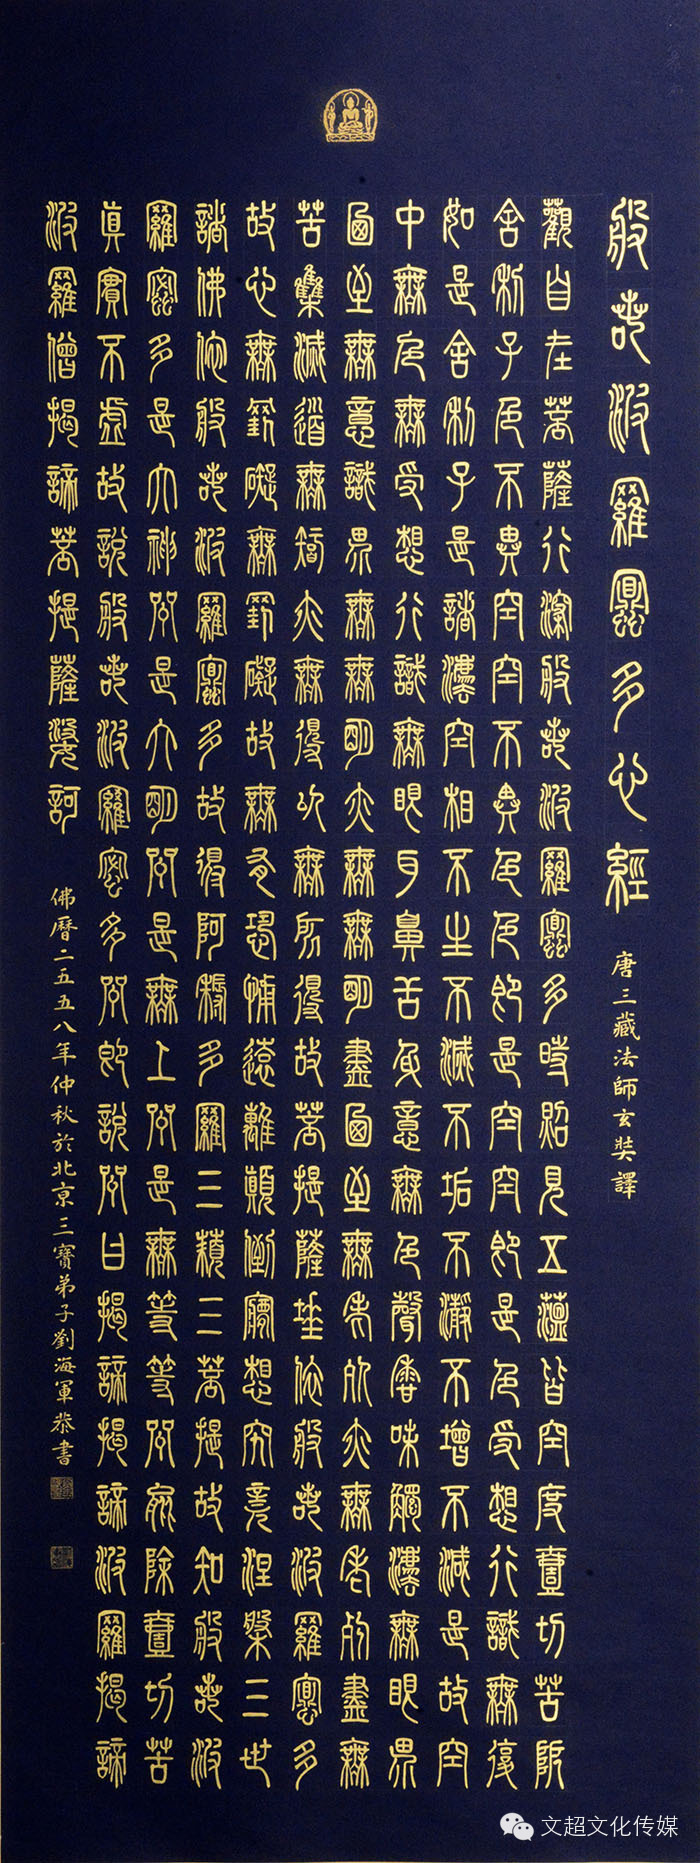 般若波羅蜜多心經 唐三藏法師玄奘譯
觀自在菩薩行深般若波羅蜜多時照見五蘊皆空度壹切苦厄
舍利子色不異空空不異色色即是空空即是色受想行識無復
如是舍利子是諸法空相不生不滅不垢不淨不增不減是故空
中無色無受想行識無眼耳鼻舌身意無色聲香味觸法無眼界
乃至無意識界無無明亦無無明盡乃至無老死亦無老死盡無
苦集滅道無智亦無得以無所得故菩提薩埵依般若波羅蜜多
故心無罣礙無罣礙故無有恐怖遠離顛倒夢想究竟涅槃三世
諸佛依般若波羅蜜多故得阿耨多羅三藐三菩提故知般若波
羅蜜多是大神咒是大明咒是無上咒是無等等咒能除壹切苦
真實不虛故說般若波羅蜜多咒即說咒曰揭諦揭諦波羅揭諦
波羅僧揭諦菩提薩婆訶 佛曆二五五八年仲秋於北京三寶弟子劉海軍恭書
文超文化传媒